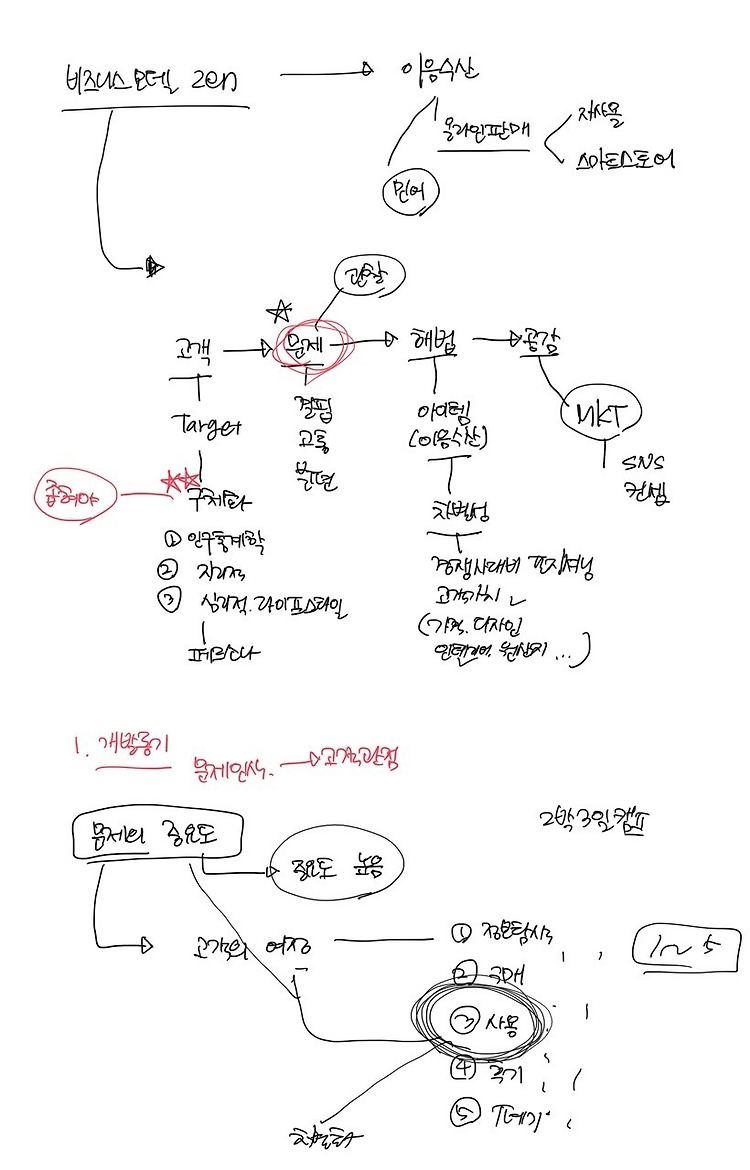 비즈니스모델 zen
이음수산
온라인판매
자사몰
스마트스토어
민어
관찰
고객
문제
해법
공감
Target
결핍
고통
불편
아이템
(이음수산)
MKT
SNS
컨셉
좁혀야
구체화
① 인구통계학
② 지리적
③ 심리적. 라이프스타일
페르소나
차별성
경쟁사대비 포지셔닝
고객가치
(가격. 디자인
원산지 ...)
1. 개발동기
문제인식.
고객관점
문제의 중요도
중요도 높음
2박3일캠프
고객의 여정
① 정보탐색
② 구매
③ 사용
④ 후기
⑤ 폐기
1~5
차별화